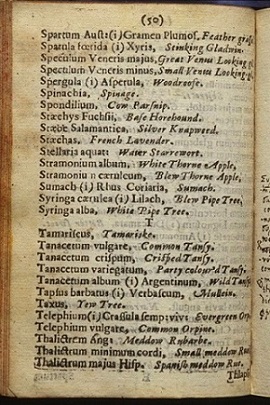 (50)
Spartum Aust: (i) Gramen Plumos. Feather grass
Spatula fœtida (i) Xyris, Stinking Gladwin.
Speculum Veneris majus, Great Venus Looking gl
Speculum Veneris minus, Small Venus Looking gl
Spergula (i) Asperula, Woodroofe.
Spinachia, Spinage.
Spondilium, Cow Parsnip.
Stæchys Fuchsii, Base Horehound.
Stœbe Salamantica, Silver Knapweed.
Stæchas, French Lavender.
Stellaria aquat: Water Starrewort.
Stramonium album, White Thorne Apple,
Stramoniu n cæruleum, Blew Thorne Apple,
Sumach (i) Rhus Coriaria, Sumach.
Syringa cærulea (i) Lilach, Blew Pipe Tree,
Syringa alba, White Pipe Tree.
T
Tamariscus, Tamariske.
Tanacetum vulgare, Common Tansy.
Tanacetum crispum, Crisped Tansy.
Tanacetum variegatum, Party colour'd Tansy.
Tanacetum album (i) Argentinum, Wild Tans
Tapsus barbatus (i) Verbascum, Mullein.
Taxus, Yew Tree.
Telephium (i) Crassula sempvive: Evergreen Orp
Telephium vulgare, Common Orpine.
Thalictrum Ang: Meddow Rubarbe.
Thalictrum minimum cordi, Small meddow Rue
Thalictrum majus Hisp. Spanish meddow Rue.
Thlaspi